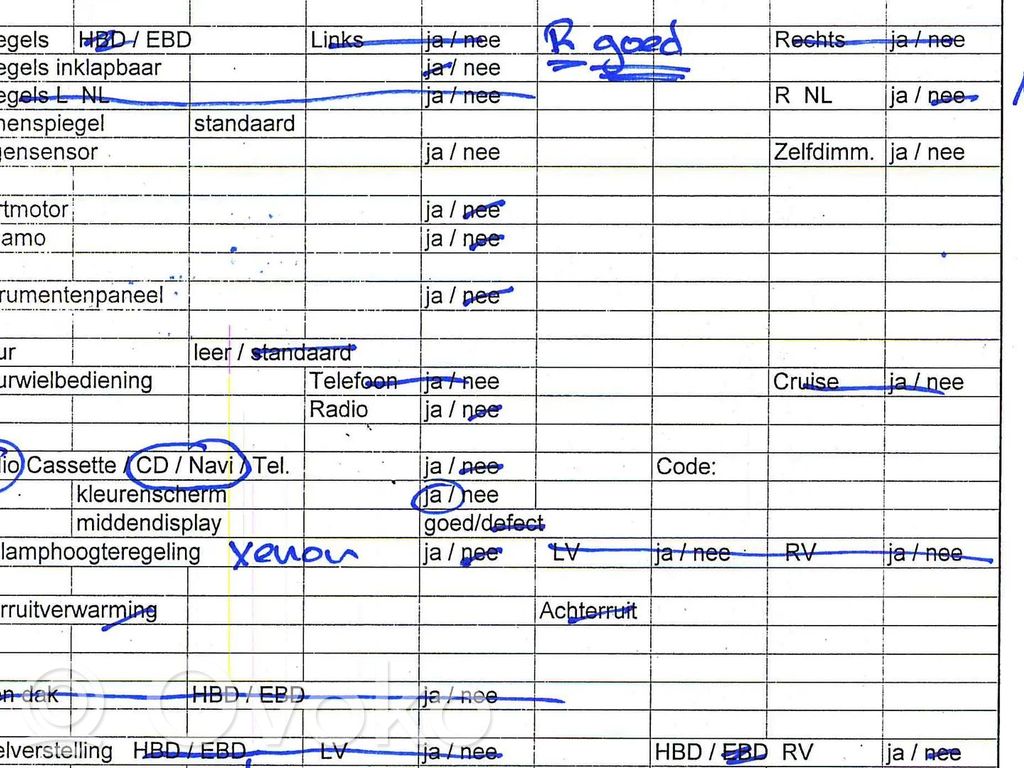 egels HBD / EBD Links ja / nee R goed Rechts ja / nee
egels inklapbaar ja / nee
egels L NL ja / nee R NL ja / nee
nenspiegel standaard
gensensor ja / nee Zelfdimm. ja / nee
rtmotor ja / nee
amo ja / nee
rumentenpaneel ja / nee
ur leer / standaard
urwielbediening Telefoon ja / nee Cruise ja / nee
Radio ja / nee
io Cassette / CD / Navi / Tel. ja / nee Code:
kleurenscherm ja / nee
middendisplay goed/defect
lamphoogteregeling xenon ja / nee LV ja / nee RV ja / nee
rruitverwarming Achterruit
n dak HBD / EBD ja / nee
© Ovoko
elverstelling HBD / EBD LV ja / nee HBD / EBD RV ja / nee